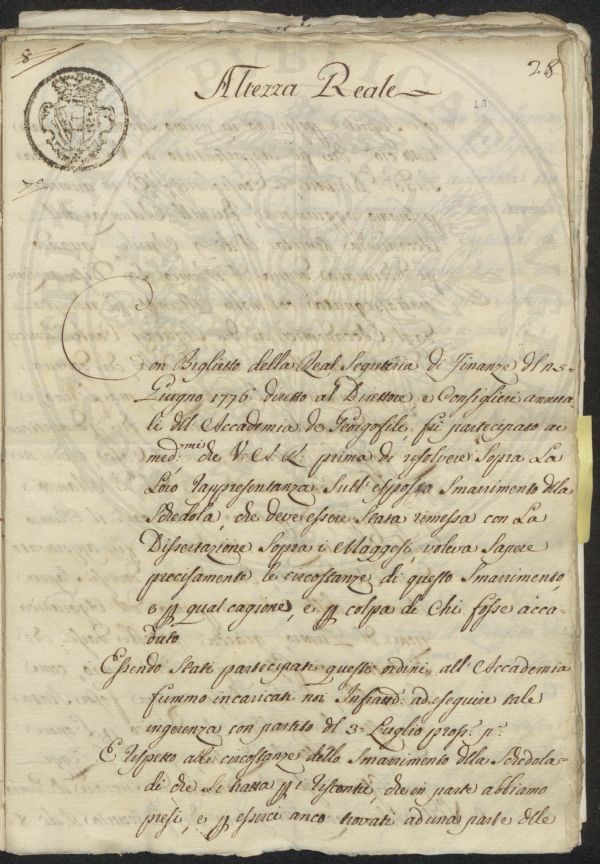 8
28
Altezza Reale
Con Biglietto della Real Segreteria di Finanze dl n 5
Giugno 1776 diretto al Direttore e Consiglieri annua-
li dell Accademia de Georgofili, fù partecipato ai
med:mi che V: A: R: prima di risolvere sopra La
Loro rappresentanza sull'esposto smarrimento dlla
Schedola, che deve essere stata rimessa con La
Dissertazione sopra i Maggesi, voleva sapere
precisamente le circostanze di questo smarrimento,
e p qual cagione, e p colpa di chi fosse acca-
duto
Essendo stati partecipati questi ordini all'Accademia
fummo incaricati noi Infratti: ad eseguire tale
ingerenza con partito dl 3 Luglio pross: p:
E rispetto alle circostanze dello smarrimento dlla schedola
di che si tratta p i riscontri, che in parte abbiamo
presi, e p esserci anco trovati ad una parte dlle